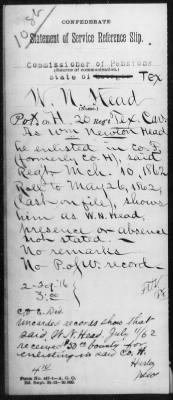 CONFEDERATE
Statement of Service Reference Slip.
Commissioner of Pensions
(Source of communication.)
State of Tex
W. N. Head
(Name.)
Pvt. Co. H. 20 Reg't Tex. Cav.
As Wm Newton Head
he enlisted in Co. F
(formerly Co. H), said
Regt Mch. 10, 1862
Roll to May 26, 1862,
(last on file), shows
him as W. N. Head,
presence or absence
not stated.
No remarks
No P of W. record
2-3
C. & E. Div.
Uncarded records show that
said W. N. Head, July 1/62
received $50 00 bounty for
enlisting in said Co. H.